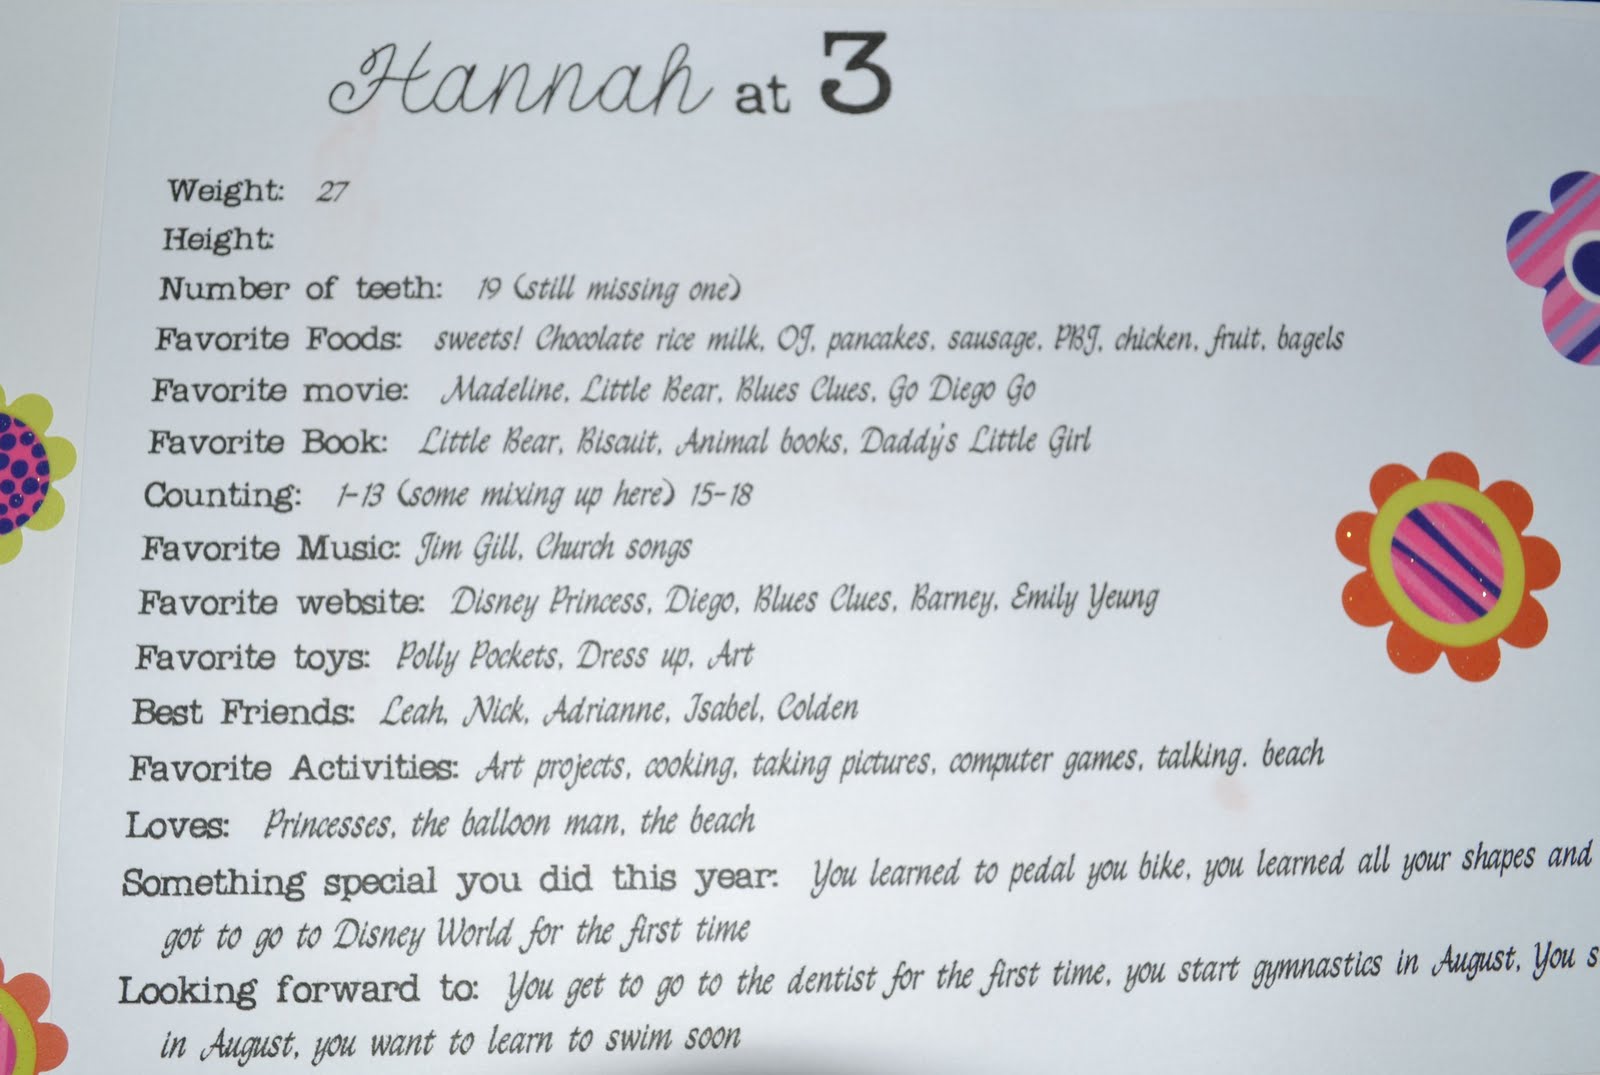 Hannah at 3
Weight: 27
Height:
Number of teeth: 19 (still missing one)
Favorite Foods: sweets! Chocolate rice milk, OJ, pancakes, sausage, PBJ, chicken, fruit, bagels
Favorite movie: Madeline, Little Bear, Blues Clues, Go Diego Go
Favorite Book: Little Bear, Biscuit, Animal books, Daddy's Little Girl
Counting: 1-13 (some mixing up here) 15-18
Favorite Music: Jim Gill, Church songs
Favorite website: Disney Princess, Diego, Blues Clues, Barney, Emily Yeung
Favorite toys: Polly Pockets, Dress up, Art
Best Friends: Leah, Nick, Adrianne, Isabel, Colden
Favorite Activities: Art projects, cooking, taking pictures, computer games, talking, beach
Loves: Princesses, the balloon man, the beach
Something special you did this year: You learned to pedal you bike, you learned all your shapes and
got to go to Disney World for the first time
Looking forward to: You get to go to the dentist for the first time, you start gymnastics in August, You
in August, you want to learn to swim soon